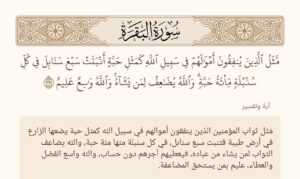 سُورَةُ البَقَرَةِ
مَّثَلُ ٱلَّذِينَ يُنفِقُونَ أَمۡوَٰلَهُمۡ فِي سَبِيلِ ٱللَّهِ كَمَثَلِ حَبَّةٍ أَنۢبَتَتۡ سَبۡعَ سَنَابِلَ فِي كُلِّ
سُنۢبُلَةٖ مِّاْئَةُ حَبَّةٖۗ وَٱللَّهُ يُضَٰعِفُ لِمَن يَشَآءُۚ وَٱللَّهُ وَٰسِعٌ عَلِيمٌ
آية وتفسير
مثل ثواب المؤمنين الذين ينفقون أموالهم في سبيل الله كمثل حبة يضعها الزارع
في أرض طيبة فتنبت سبع سنابل، في كل سنبلة منها مئة حبة، والله يضاعف
الثواب لمن يشاء من عباده، فيعطيهم أجرهم دون حساب، والله واسع الفضل
والعطاء، عليم بمن يستحق المضاعفة.